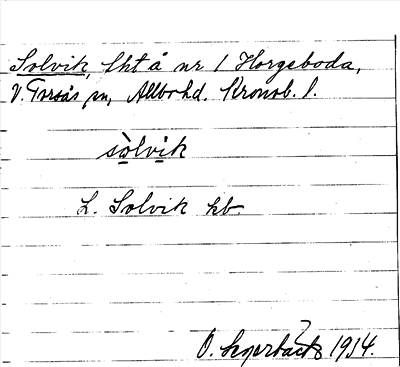 Solvik, lht å nr 1 Horgeboda,
V. Torsås sn, Allbo hd. Kronob. l.
sòlvik
L. Solvik kb.
O. 1914.